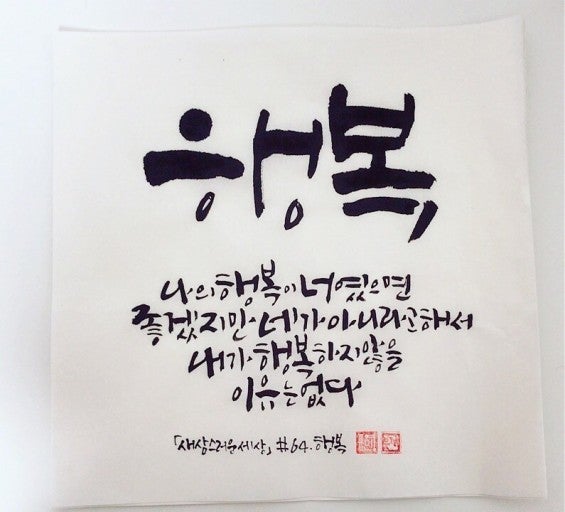 행복
나의 행복이 너였으면
좋겠지만 네가 아니라고 해서
내가 행복하지 않을
이유는 없다
「새삼스러운 세상」 #64. 행복